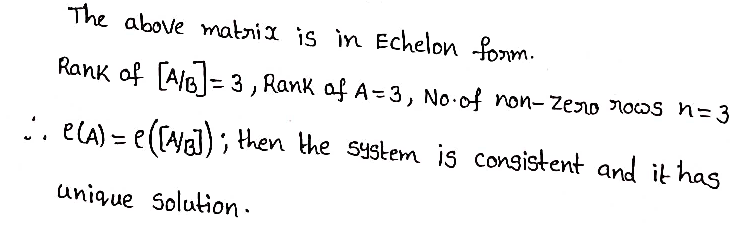 The above matrix is in Echelon form.
Rank of [A/B] = 3, Rank of A = 3, No. of non-zero rows n = 3
∴ ρ(A) = ρ([A/B]); then the system is consistent and it has
unique solution.